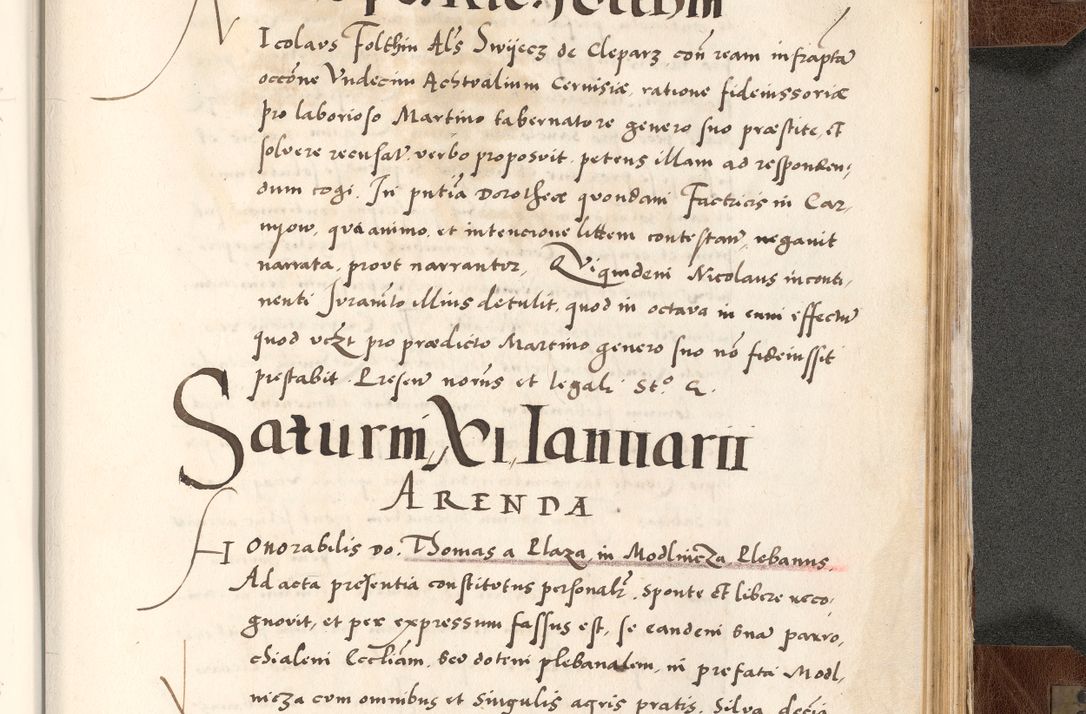 Nicolaus Folthin Als Swijecz de Cleparz, con ream infraptã
occõne Vndecim Achtvalium Ceruisiæ, ratione fideiussoriæ
pro laborioso Martino tabernatore genero suo præstite, et
soluere recusat, verbo proposuit, petens illam ad responden,
dum cogi. In pntia Dorotheæ quondam Factricis in Car,
nyow, quæ animo, et intencione littem contestan, negauit
narrata, prout narrantur, Quiquidem Nicolaus inconti,
nenti Juramto illius detulit, quod in octaua in eum effectu
quod vczt pro prædicto Martino genero suo nõ fideiussit
prestabit. Presen norus et legali Sto. Q.
Saturni, XI, Ianuarii
ARENDA
Honorabilis Do. Thomas a Plaza in Modlnicza Plebanus,
Ad acta presentia constitutus personalr, sponte et libere reco,
gnouit, et per expressum fassus est, se eandem sua parro,
chialem Eccliam, seu dotem plebanalem, in prefata Modl,
nicza cum omnibus et singulis agris pratis, Silva, decia